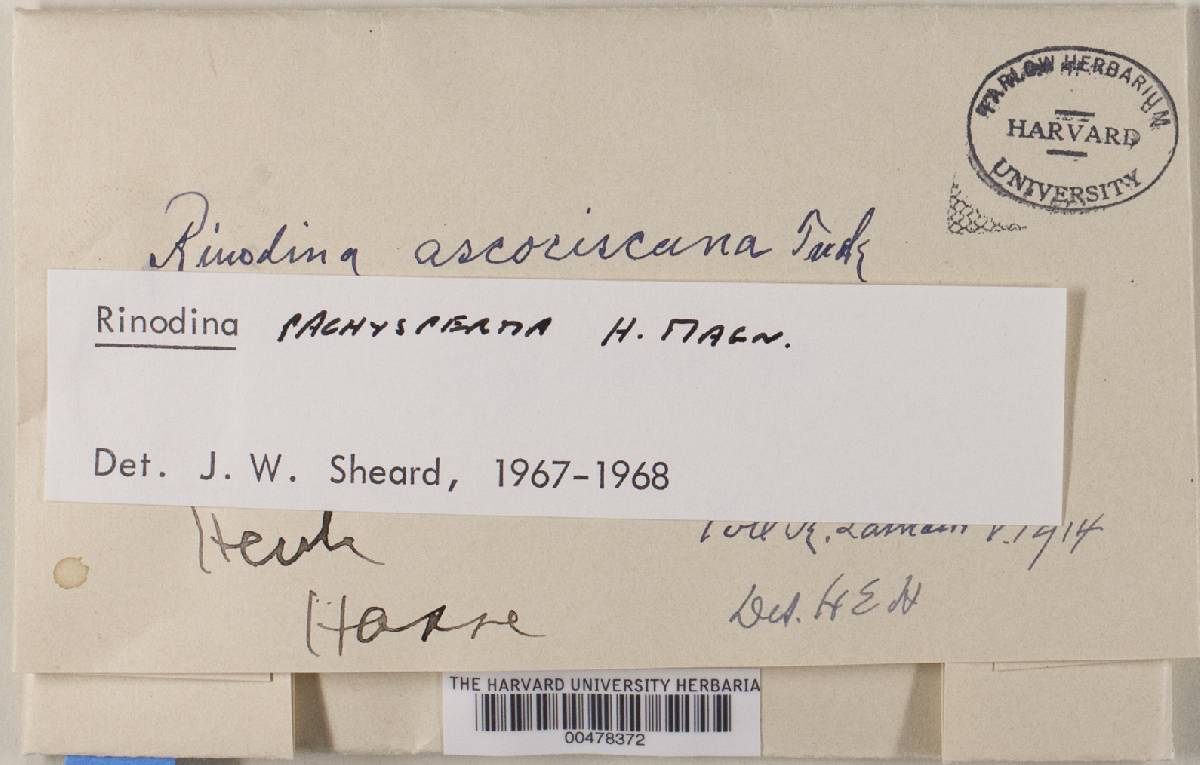 FARLOW HERBARIUM
HARVARD
UNIVERSITY
Rinodina ascociscana Tuck
Rinodina PACHYSPERMA H. MAGN.
Det. J. W. Sheard, 1967-1968
1914
Herb
Hasse
Det. H E H
THE HARVARD UNIVERSITY HERBARIA
00478372